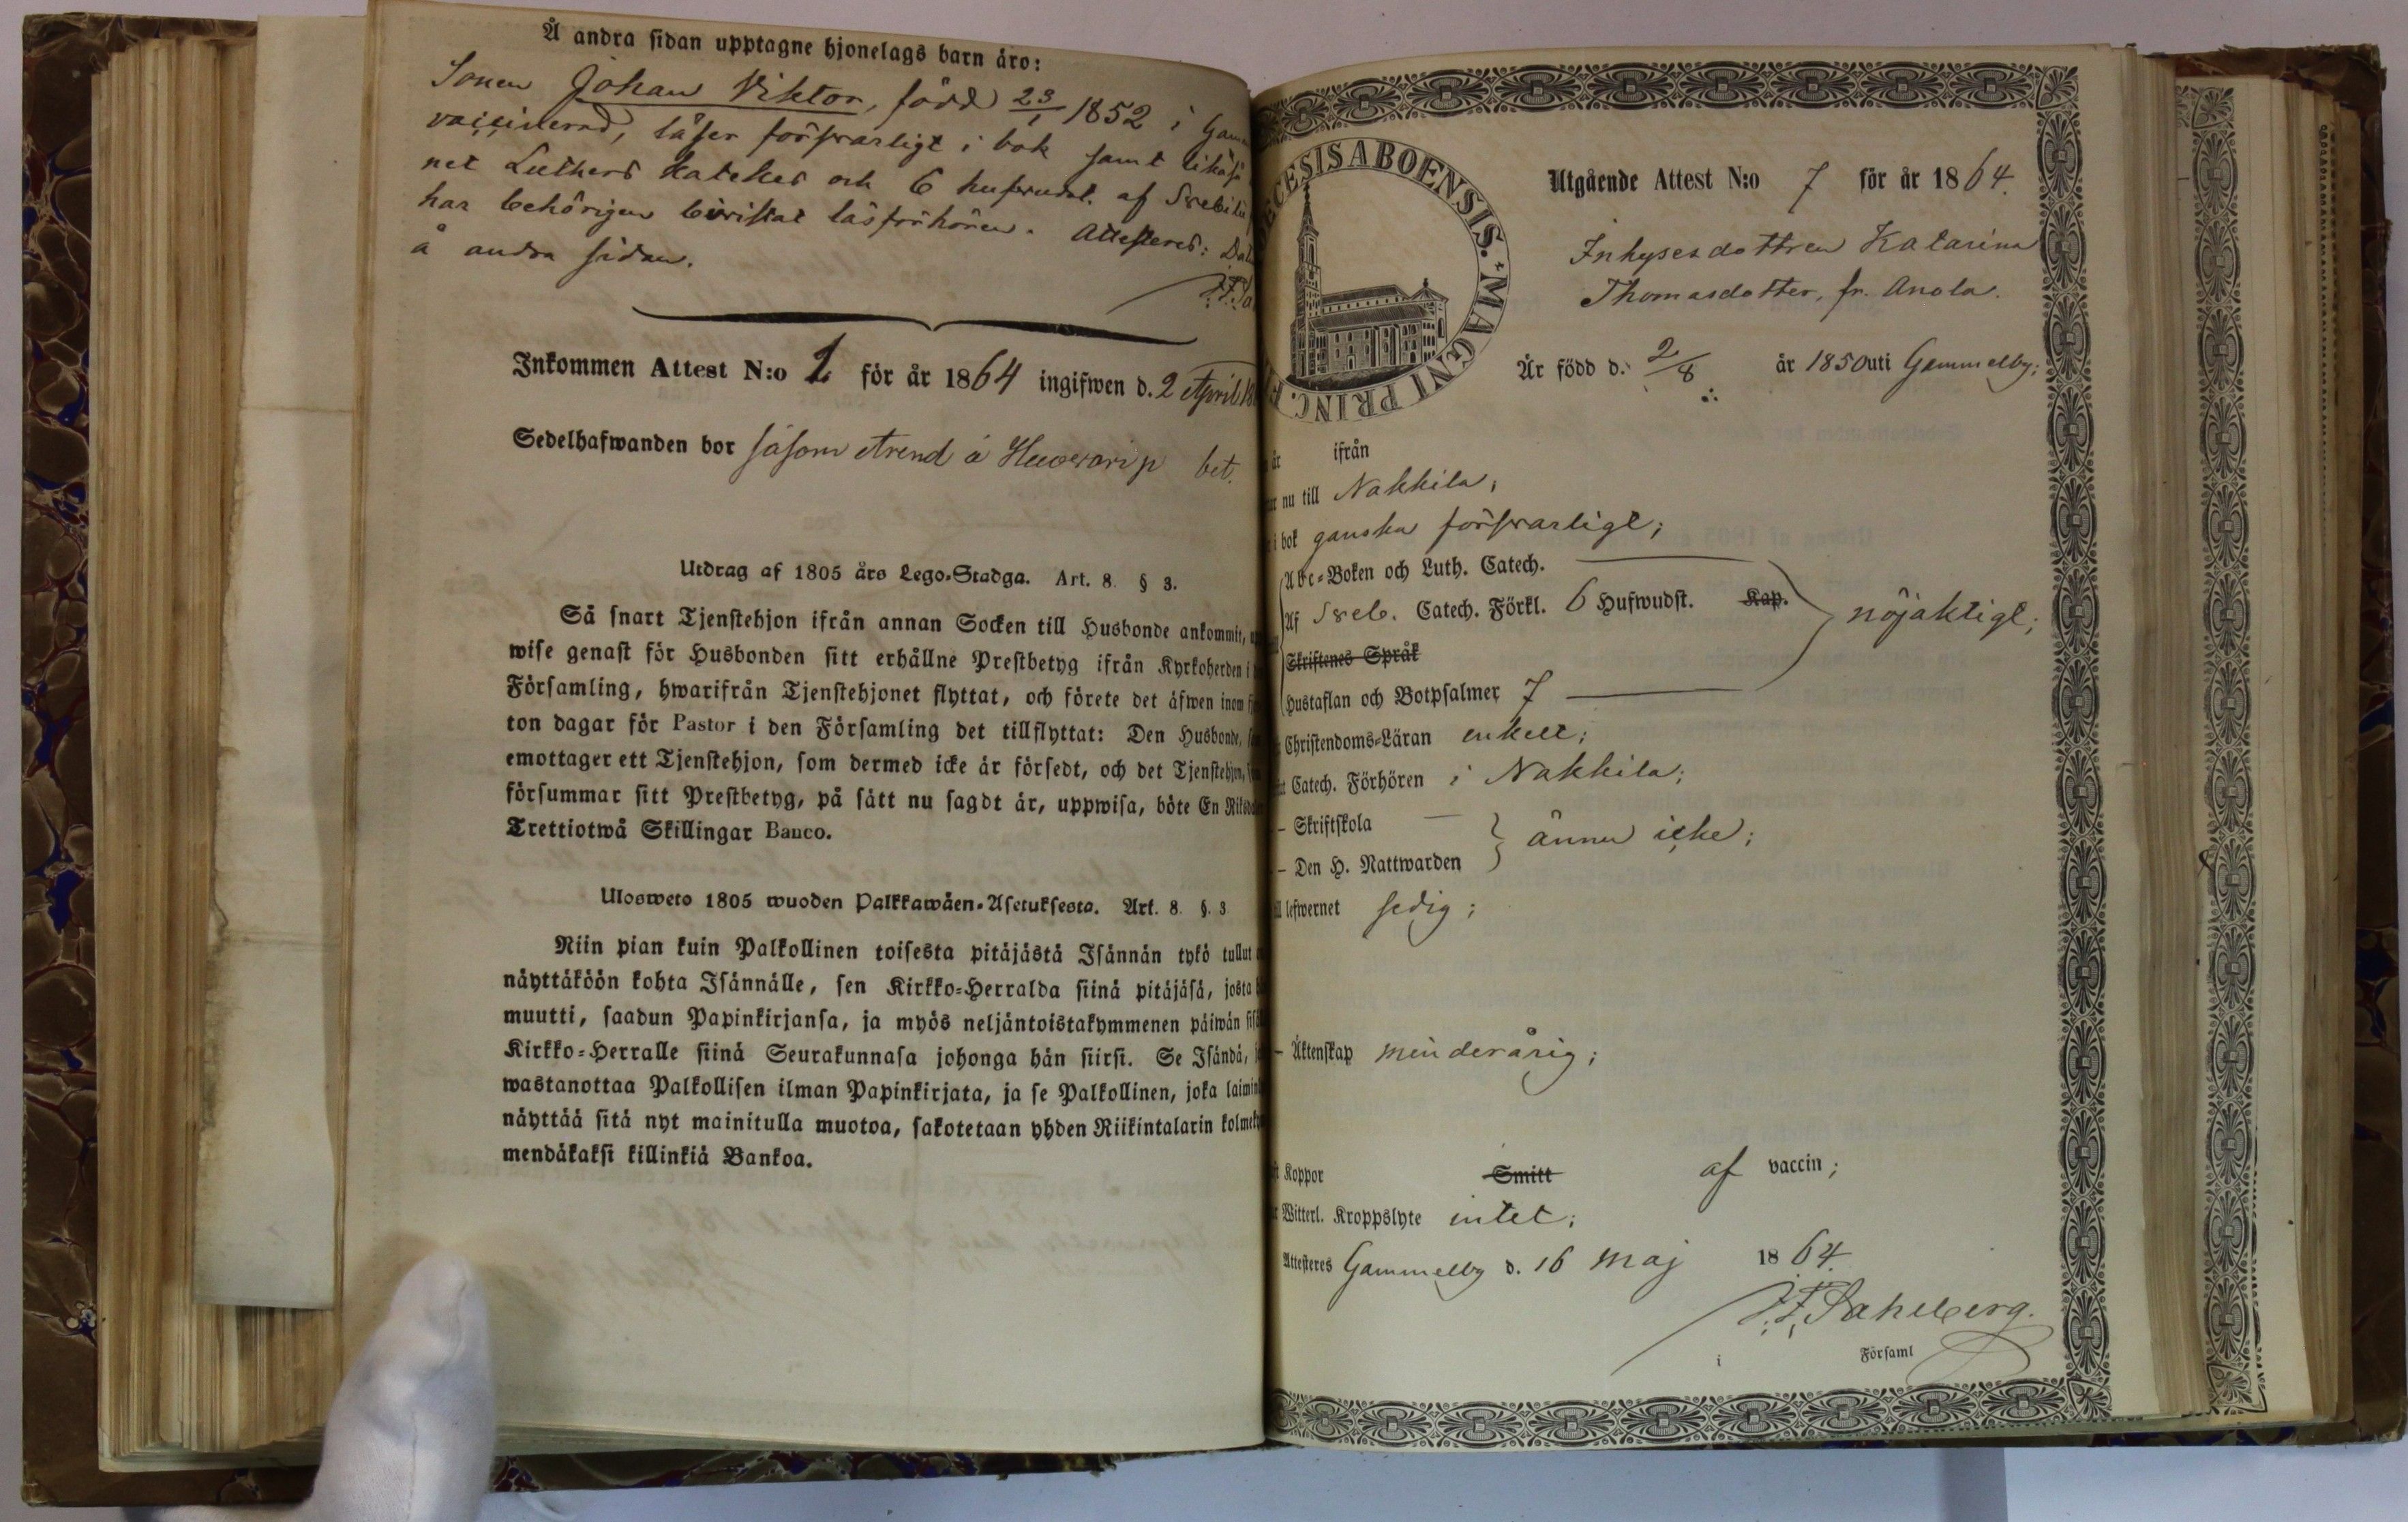 Å andra sidan upptagne hjonelags barn äro:
Sonen Johan Viktor, född 23/1 1852 i
vaccinerad, läser försvarligt i bok samt likaså
net Luthers Kateches och 6 hufvudst. af Svebilii
har behörigen bivistat läsförhören. Attesteras:
å andra sidan.
Inkommen Attest N:o 1 för år 1864 ingifwen d. 2 April
Sedelhafwanden bor såsom
Utdrag af 1805 års Lego-Stadga. Art. 8 § 3.
Så snart Tjenstehjon ifrån annan Socken till Husbonde ankommit,
wise genast för Husbonden sitt erhållne Prestbetyg ifrån Kyrkoherden i
Församling, hwarifrån Tjenstehjonet flyttat, och förete det äfwen inom
ton dagar för Pastor i den Församling det tillflyttat: Den Husbonde,
emottager ett Tjenstehjon, som dermed icke är försedt, och det Tjenstehjon,
försummar sitt Prestbetyg, på sätt nu sagdt är, uppwisa, böte En
Trettiotwå Skillingar Banco.
Ulosweto 1805 wuoden Palkkawäen-Asetuksesta. Art. 8. §. 3
Niin pian kuin Palkollinen toisesta pitäjästä Isännän tykö tullut
näyttäköön kohta Isännälle, sen Kirkko-Herralda siinä pitäjäsä, josta
muutti, saadun Papinkirjansa, ja myös neljäntoistakymmenen päiwän
Kirkko-Herralle siinä Seurakunnasa johonga hän siirsi. Se Isändä,
wastanottaa Palkollisen ilman Papinkirjata, ja se Palkollinen, joka
näyttää sitä nyt mainitulla muotoa, sakotetaan yhden Riikintalarin
mendäkaksi killinkiä Bankoa.
ECESIS ABOENSIS. MAGNI PRINC.
Utgående Attest N:o 7 för år 1864.
Inhysesdottren Katarina
Thomasdotter, fr. Anola.
Är född d. 2/8 år 1850 uti Gammelby;
ifrån
nu till Nakkila;
i bok ganska försvarligt;
Abc-Boken och Luth. Catech.
Af Sveb. Catech. Förkl. 6 Hufwudst. Kap. nöjaktigt;
Skriftenes Språk
Hustaflan och Botpsalmer 7
Christendoms-Läran enkelt;
Catech. Förhören i Nakkila;
– Skriftskola
ännu icke;
– Den H. Nattwarden
lefwernet sedig;
– Äktenskap minderårig;
Koppor Smitt af vaccin;
Witterl. Kroppslyte intet;
Attesteres Gammelby d. 16 Maj 1864.
J. F. Sahlberg.
i Församl